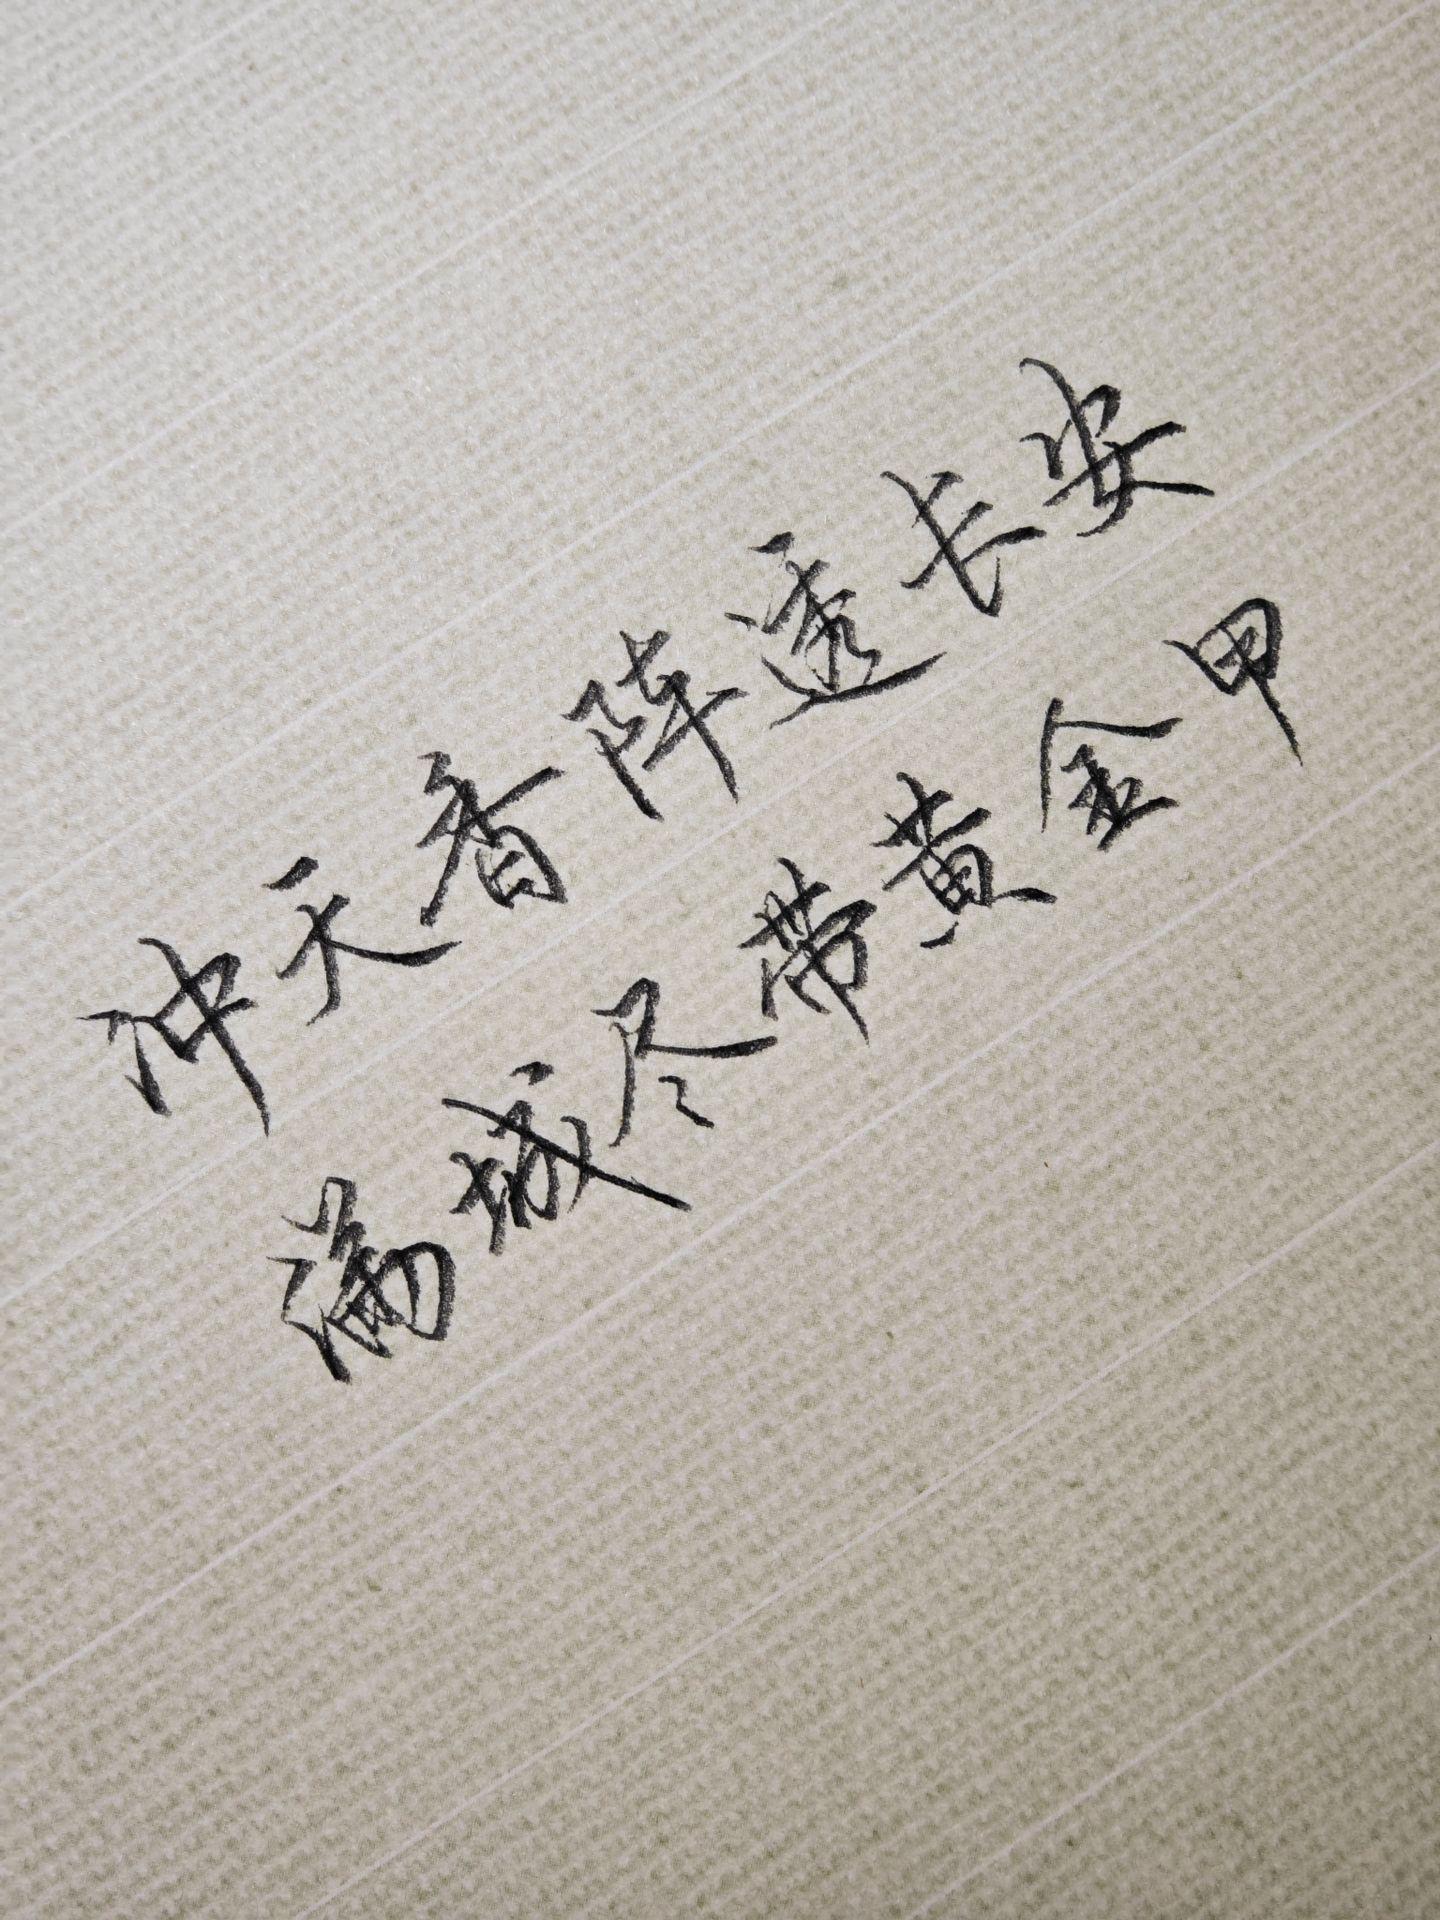 冲天香阵透长安
满城尽带黄金甲